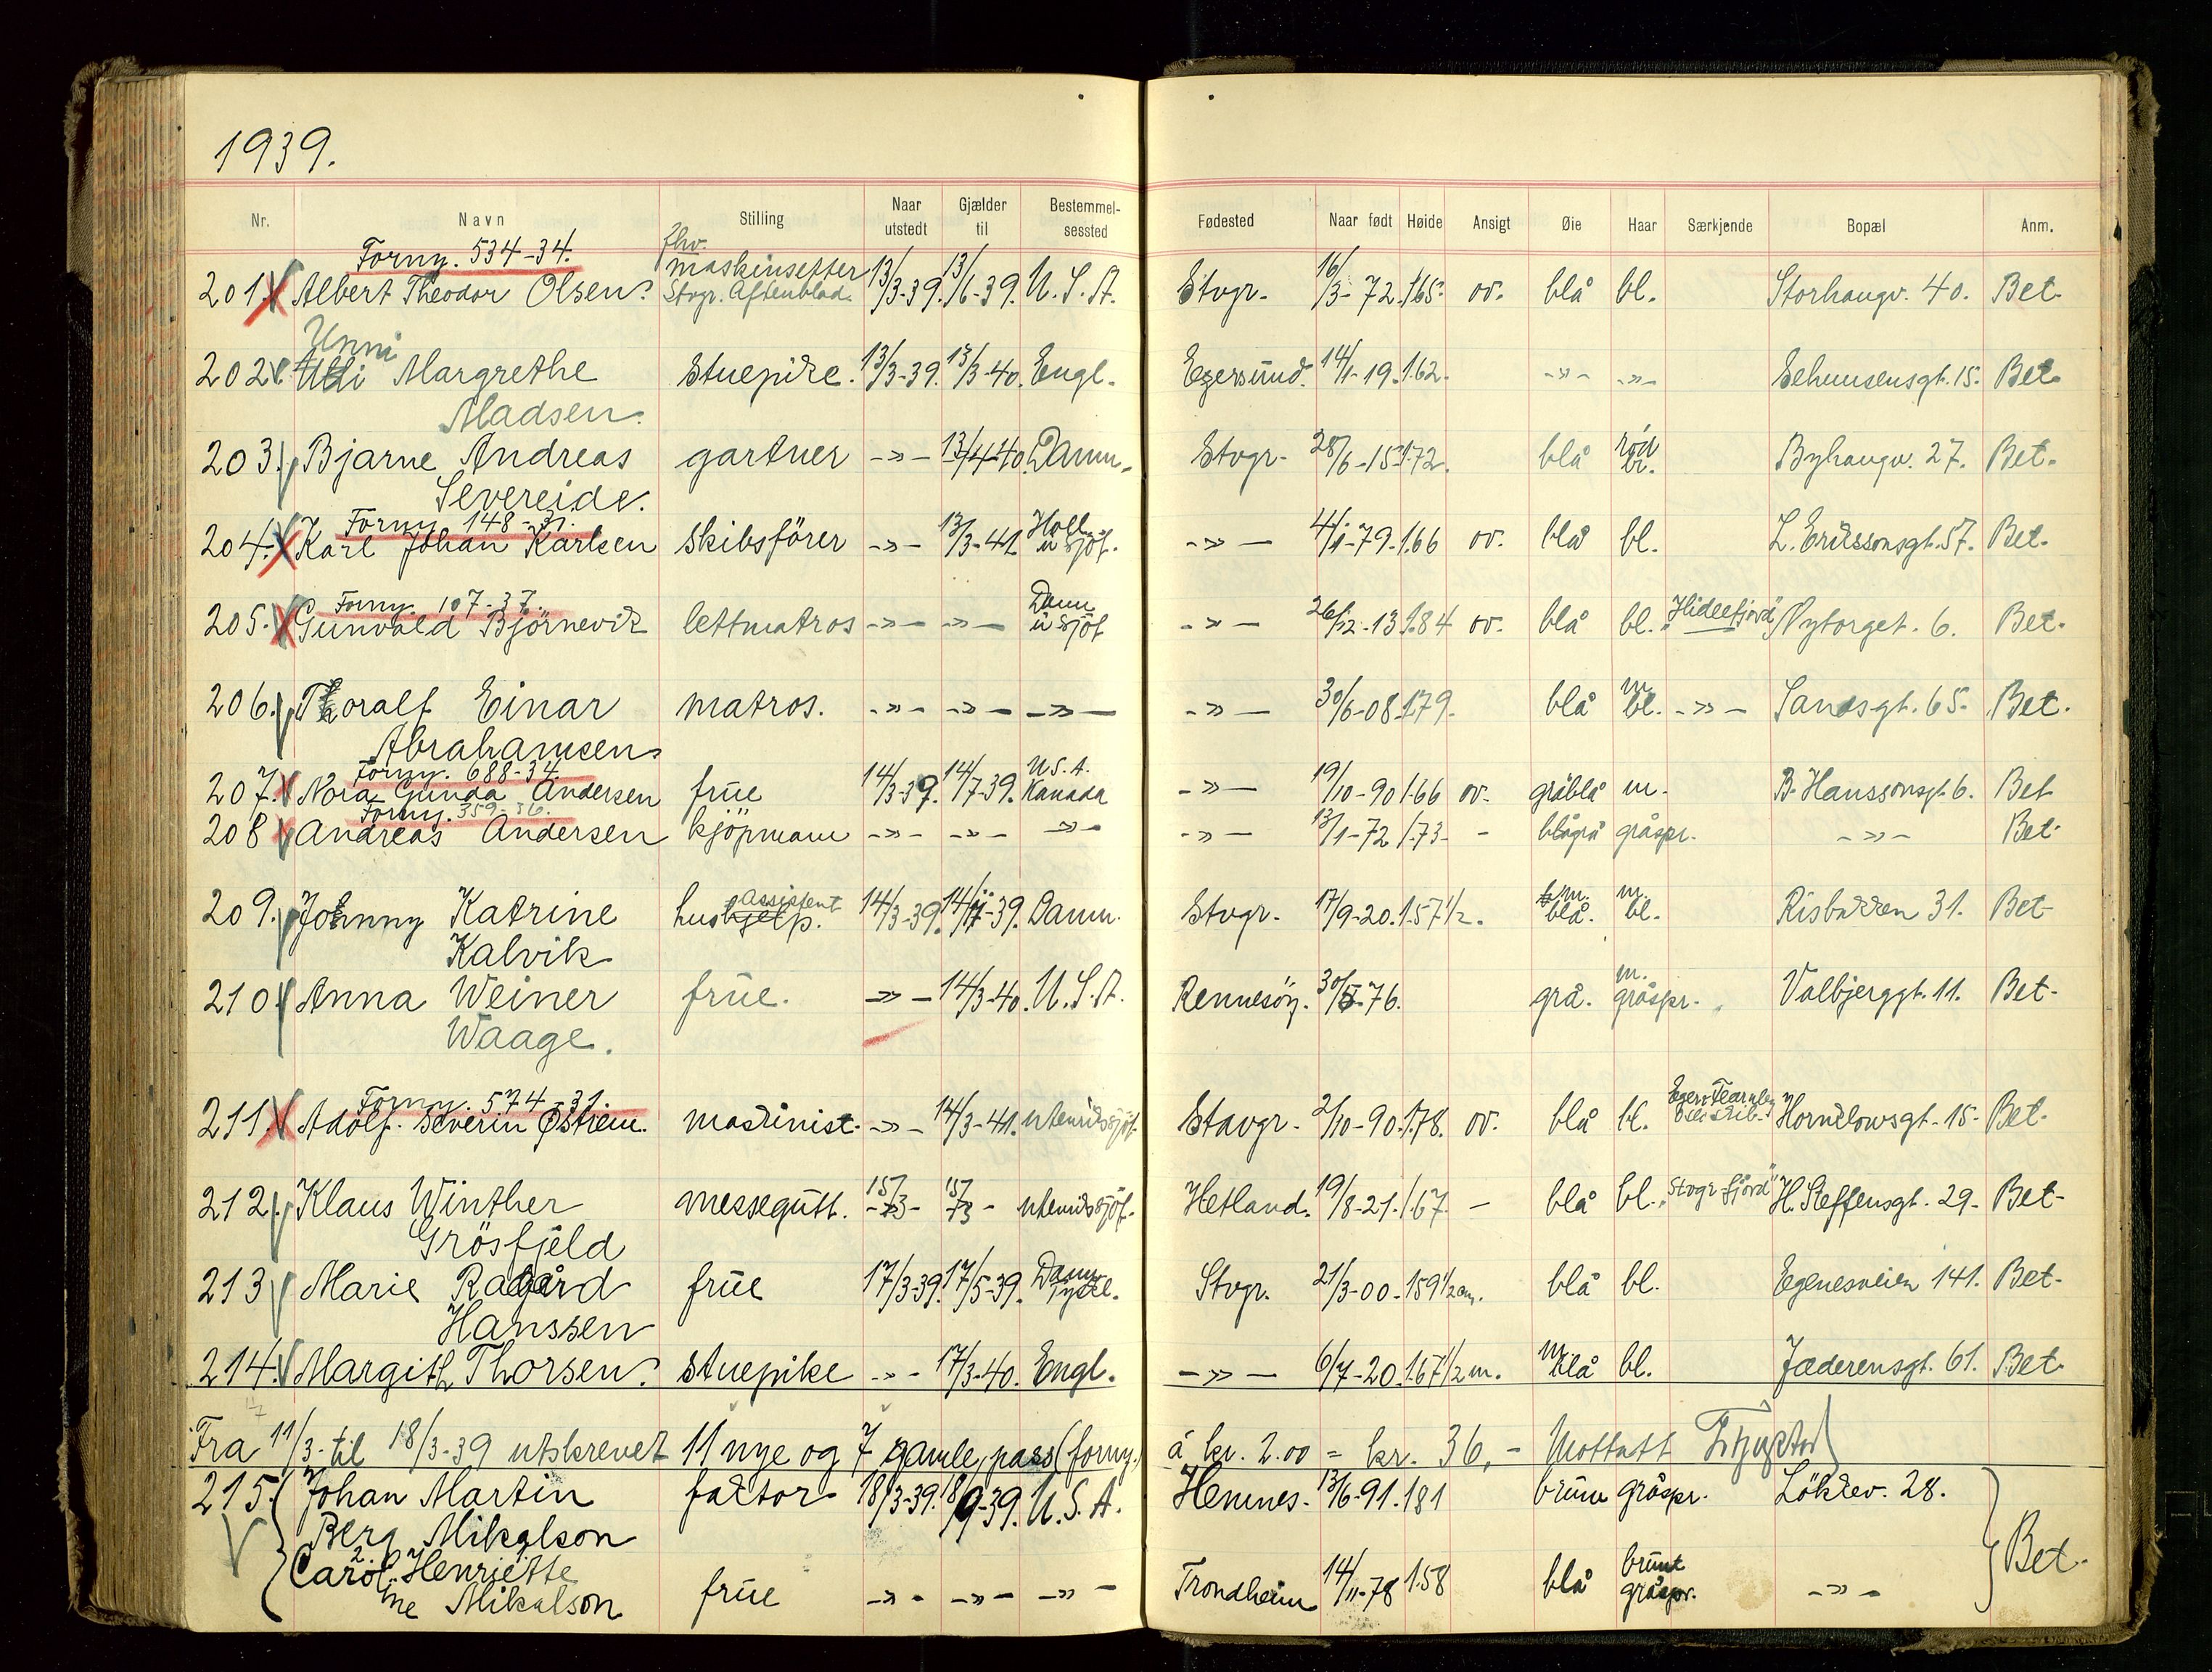 1939.
Nr. Navn Stilling Naar utstedt Gjælder til Bestemmelsessted Fødested Naar født Høide Ansigt Øie Haar Særkjende Bopæl Anm.
Forny. 534-34. fhv.
201. Albert Theodor Olsen. maskinsetter Stvgr. Aftenblad. 13/3-39. 13/6-39. U.S.A. Stvgr. 16/3-72. 165. ov. blå bl. Storhaugv. 40. Bet.
Unni
202. Margrethe stuepike. 13/3-39. 13/3-40. Engl. Egersund. 14/1-19. 1.62. -»- -»- 15. Bet.
Madsen.
203. Bjarne Andreas gartner -»- 13/4-40. Danm. Stvgr. 28/6-15. 1.72. blå rød br. Byhaugv. 27. Bet.
Severeide.
Forny. 148-31.
204. Karl Johan Karlsen skibsfører -»- 13/3-41. Holl. u sjöf. -»- 4/1-79. 1.66 ov. blå bl. L. Erikssonsgt. 57. Bet.
Forny. 107-37.
205. Gunvald Björnevik lettmatros -»- -»- Danm u sjöf -»- 26/12-13. 1.84 ov. blå bl. "Hidlefjord" Nytorget. 6. Bet.
206. Thoralf Einar matros. -»- -»- -»- -»- 30/6-08. 1.79. blå m. bl. -»- Sandsgt. 65. Bet.
Abrahamsen
Forny. 688-34.
207. Nora Gunda Andersen frue 14/3-39. 14/7-39. U.S.A. Kanada -»- 19/10-90 1.66 ov. gråblå m. B. Hanssonsgt. 6. Bet
Forny. 359-36.
208 Andreas Andersen kjöpmann -»- -»- -»- -»- 13/1-72 1.73- - blågrå gråspr. -»- Bet.
209. Johnny Katrine hushjelp. assistent 14/3-39. 14/ -39. Danm. Stvgr. 17/9-20. 1.57 1/2. m. blå. m. bl. Risbakken 31. Bet-
Kalvik
210. Anna Weiner frue. -»- 14/3-40. U.S.A. Rennesöy. 30/ -76. grå. m. gråspr. Valbjerggt. 11. Bet-
Waage.
Forny. 574-31.
211. Adolf. Severin Østrem. maskinist. -»- 14/3-41. utenriksjöf. Stavgr. 2/10-90. 1.78. ov. blå bl. Horneklowsgt. 15. Bet.
212. Klaus Winther messegutt. 15/3- 15/3- utenriksjöf. Hetland. 19/8-21. 1.67. - blå bl. "Stvgr fjord" H. Steffensgt. 29. Bet-
Grösfjeld
213 Marie Ragård frue 17/3-39. 17/5-39. Danm. Tyskl. Stvgr. 21/3-00. 159 1/2 cm. blå bl. Egenesveien 141. Bet-
Hanssen
214. Margith Thorsen. stuepike -»- 17/3-40. Engl. -»- 6/7-20. 1.67 1/2 m. m blå bl. Jæderensgt. 61. Bet.
Fra 11/3- til 18/3-39 utskrevet 11 nye og 7 gamle pass (forny.) á kr. 2.00 = kr. 36,- Mottatt
215. Johan Martin faktor 18/3-39. 18/9-39. U.S.A. Hemnes. 13/6-91. 181 brune gråspr. Lökkev. 28.
Berg Mikalson Bet.
Caroline Henriette
Mikalson frue -»- -»- -»- Trondheim 14/11-78 1.58 blå brunt gråspr. -»-